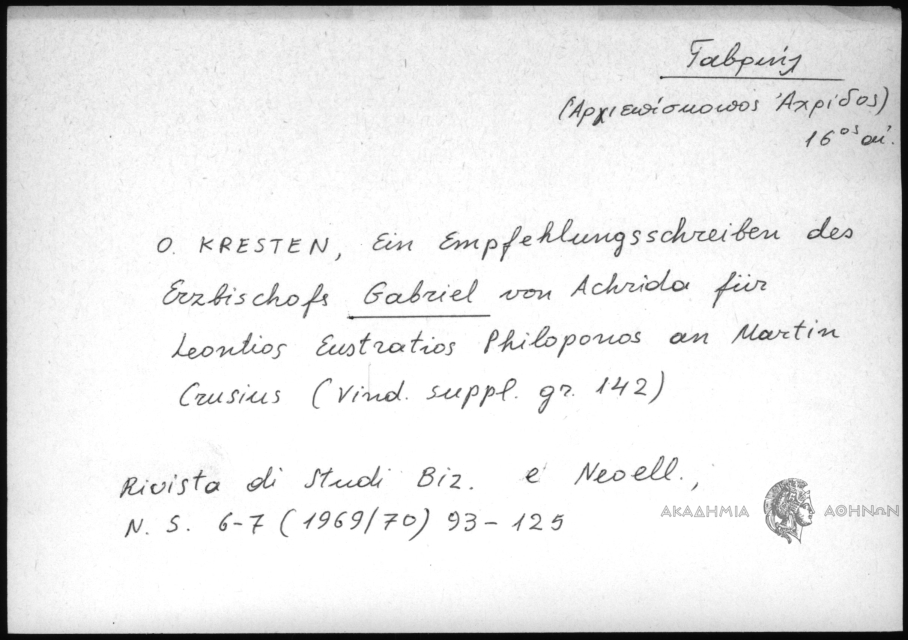 Γαβριήλ
(Αρχιεπίσκοπος Ἀχρίδος)
16ος αἰ.
O. KRESTEN, Ein Empfehlungsschreiben des
Erzbischofs Gabriel von Achrida für
Leontios Eustratios Philoponos an Martin
Crusius (Vind. suppl. gr. 142)
Rivista di Studi Biz. e Neoell.,
N. S. 6-7 (1969/70) 93-125
ΑΚΑΔΗΜΙΑ ΑΘΗΝΩΝ